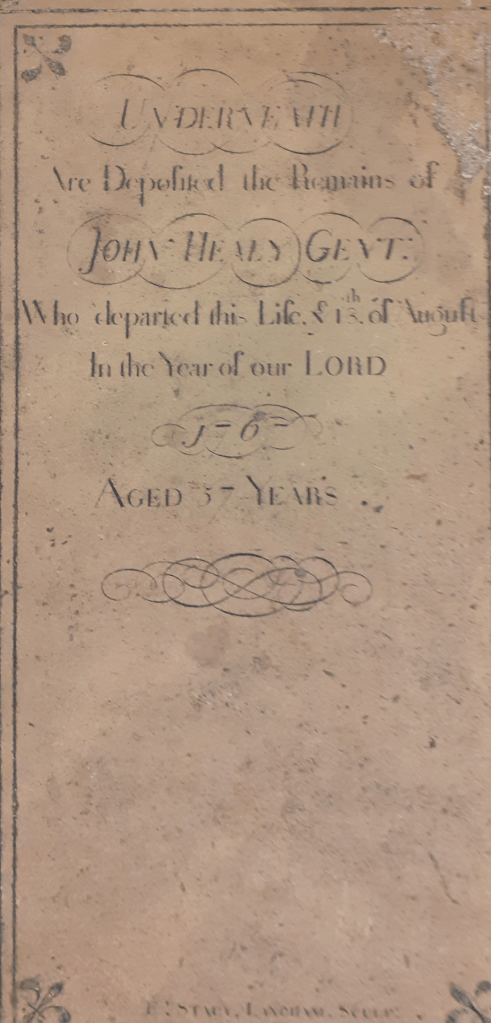 UNDERNEATH
Are Depoſited the Remains of
JOHN HEALY GENT:
Who departed this Life, ye 13th of Auguſt
In the Year of our LORD
1767
AGED 57 YEARS.
STACY, LANGHAM, SCULP: